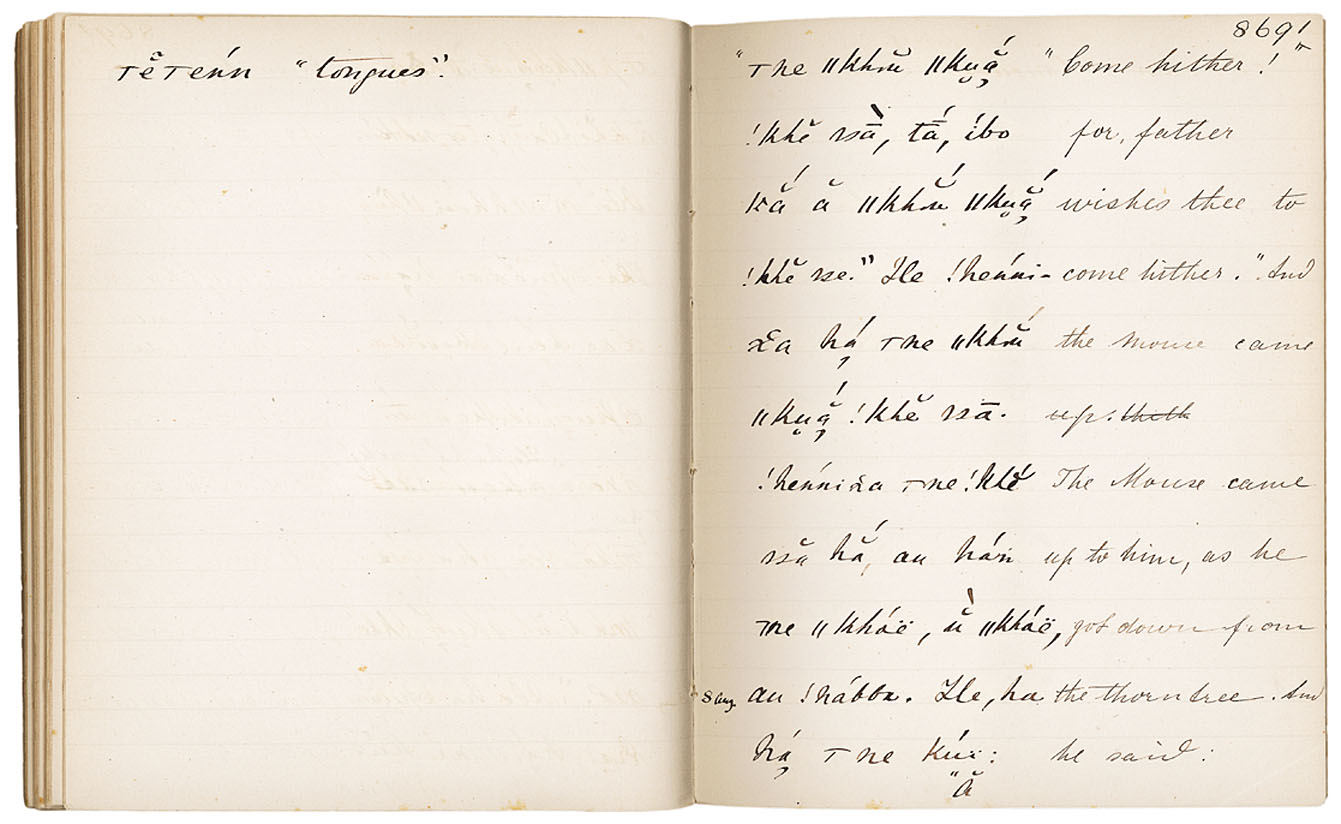 тĕ̃тeńn "tongues".
8691
"тne ǁkhoŭ ǁkṷắ̰ "Come hither!"
!khĕ ssā̀, tā́, íbo for, father
kắ ă ǁkhoŭ́ ǁkṷắ̰ wishes thee to
!khĕ sse." He !heńni- come hither." And
ʘa há̰ тne ǁkhoŭ́ the Mouse came
ǁkṷắ̰ !khĕ ssā. up. thith
!heńniʘa тne !khĕ́ The Mouse came
ssă hắ, au háṅ up to him, as he
тne ǁkhóë, ŭ̀ ǁkhóë, got down from
8 Aug. au !nábba. He, ha the thorn tree. And
há̰ тne kúï: he said:
"ă